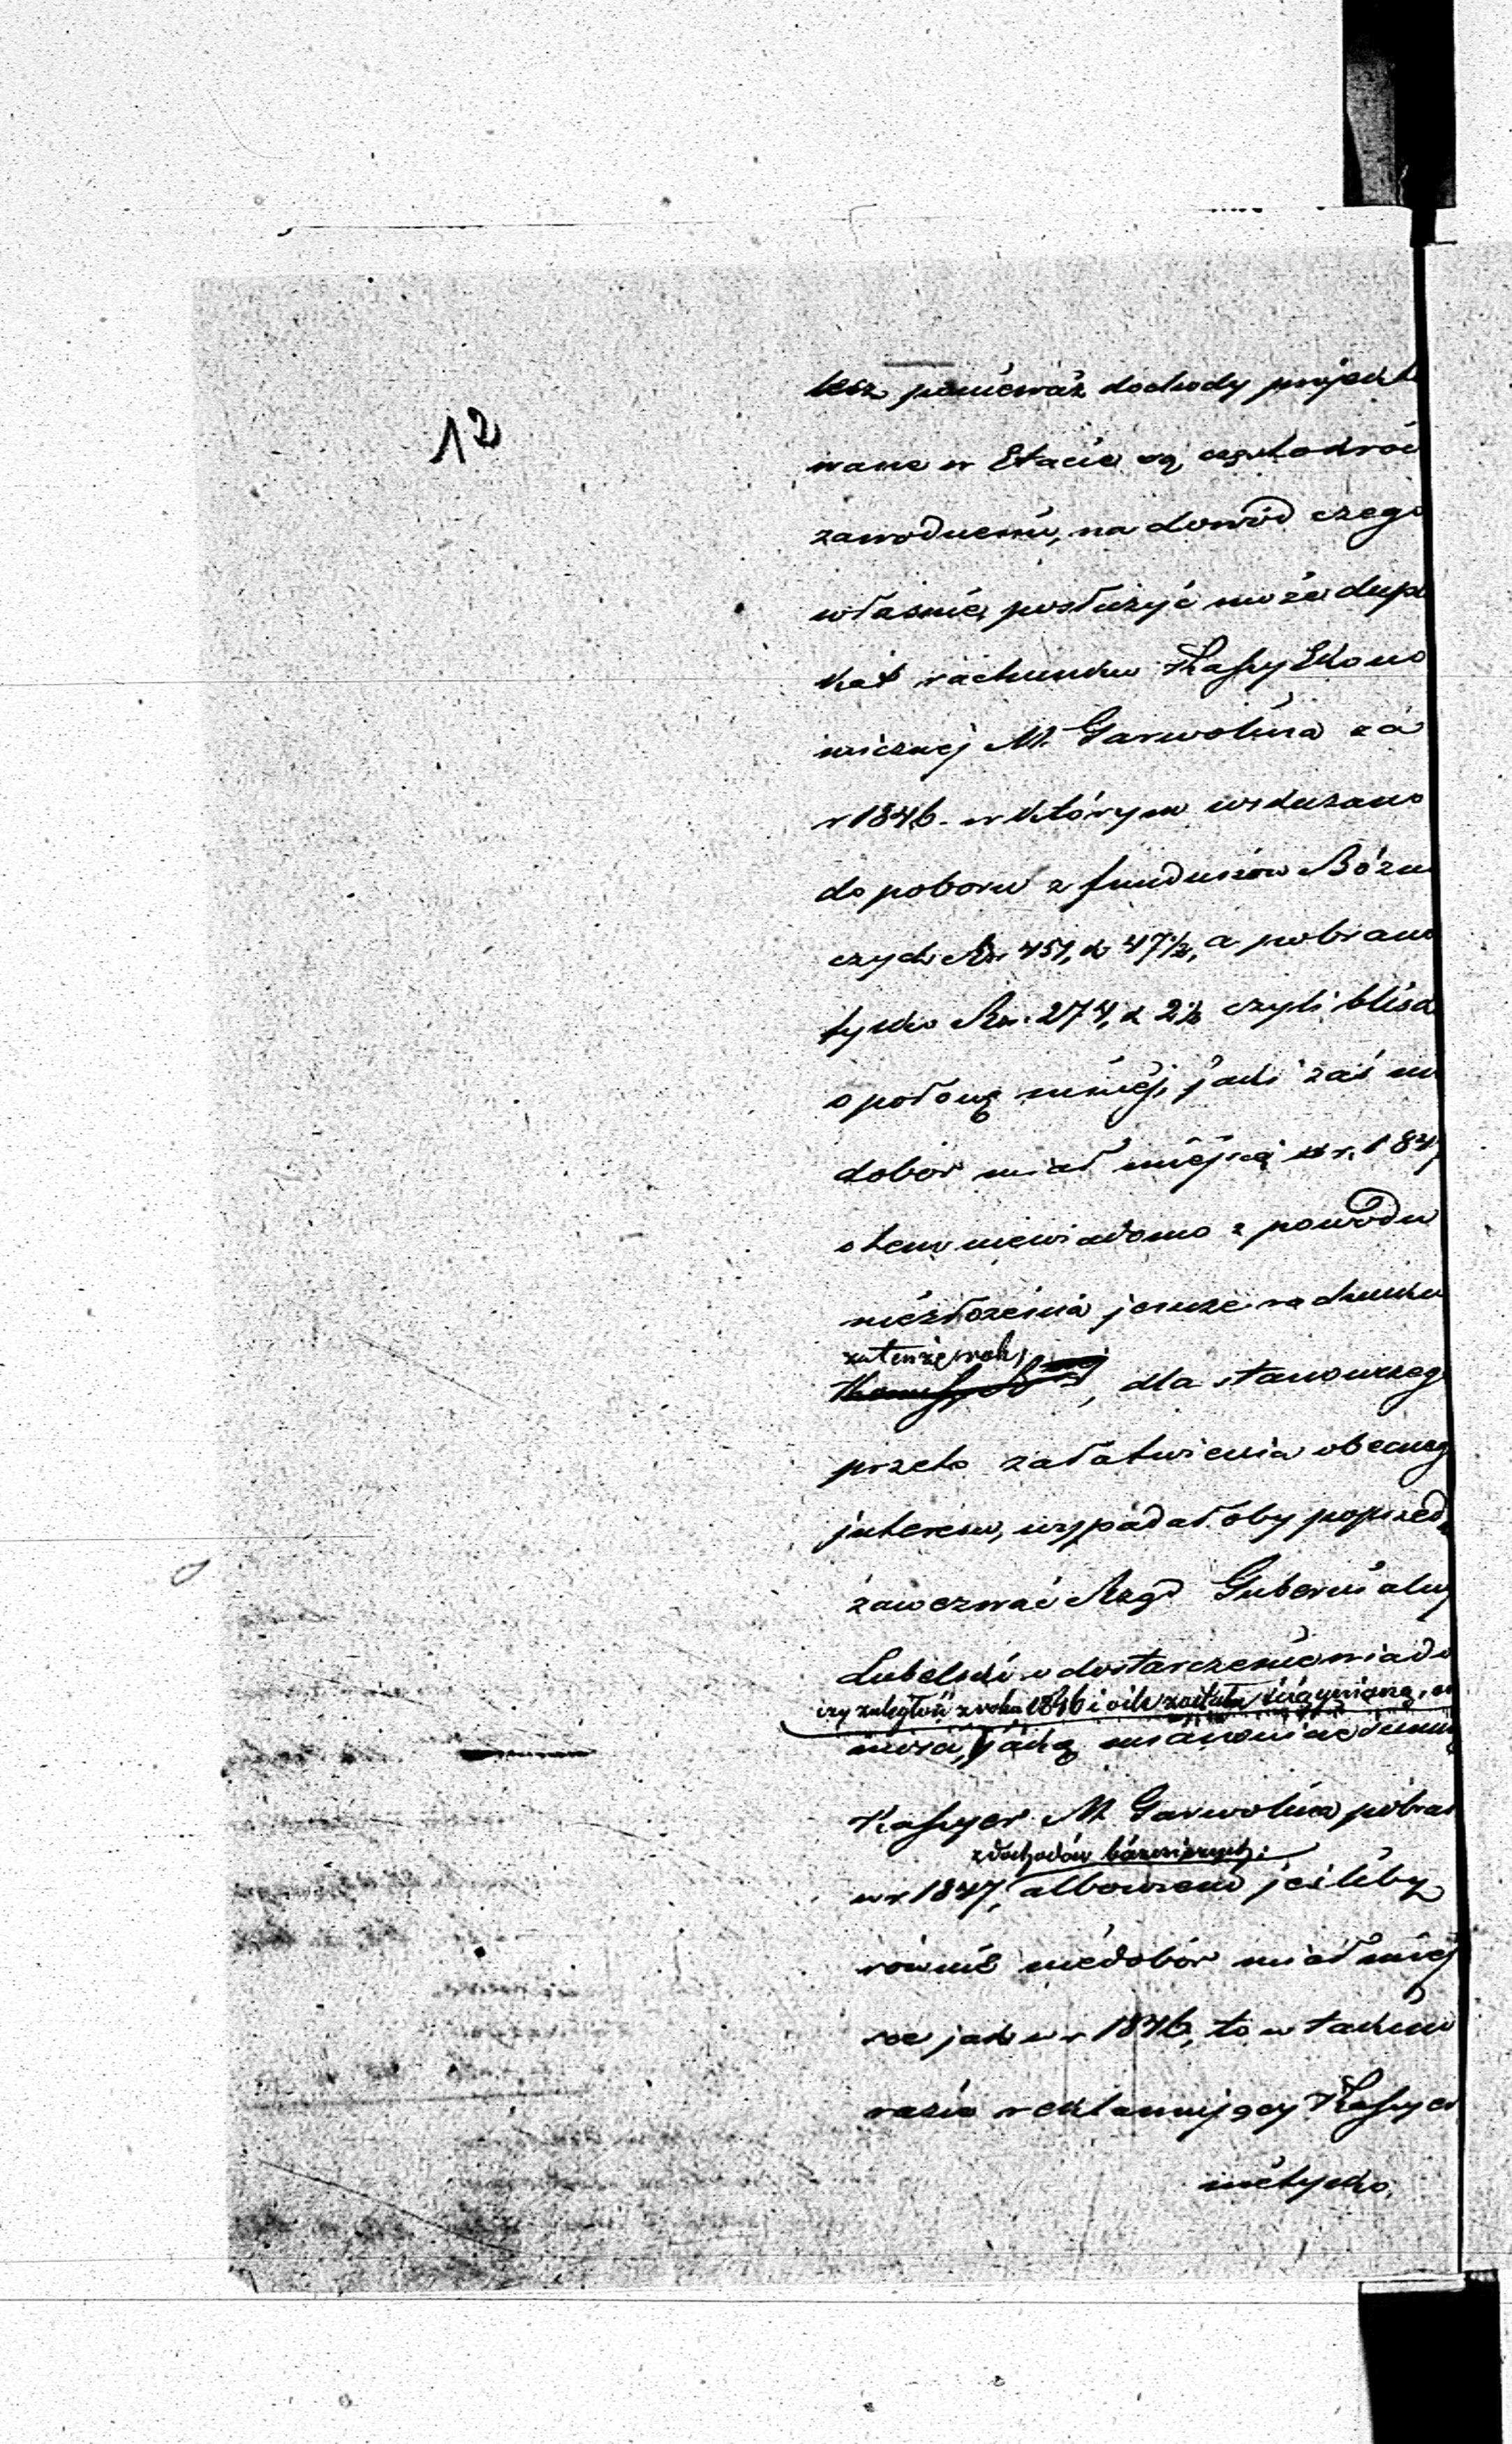 12
lecz ponieważ dochody projekt
wane w Etacie są częstokroć
zawodnemi, na dowód czego
właśnie, posłużyć może dupl
kat rachunku Kassy Ekono
micznej M. Garwolina za
r 1846. w którym wskazano
do poboru z funduszów Bóżni
czych Rs. 451, k 47½, a pobrano
tylko Rs. 274, k 2½ czyli blisk
o połowę mniej, jaki zaś nie
dobór miał miejsce w r. 184
o tem niewiadomo z powodu
niezłożenia jeszcze rachunku
za tenże rok,
, dla stanowczego
przeto załatwienia obecneg
interesu, wypadałoby poprzed
zawezwać Rząd Gubernialny
Lubelski o dostarczenie wiado
czy zaległość z roku 1846 i o ile została ściągnięta,
mości, jaką mianowicie summę
Kassyer M. Garwolina pobrał
z dochodów bóżniczych:
w r 1847, albowiem jeśliby
równie niedobór miał miej
sce jak w r 1846, to w takim
razie reklamujący Kassyer
nietylko,